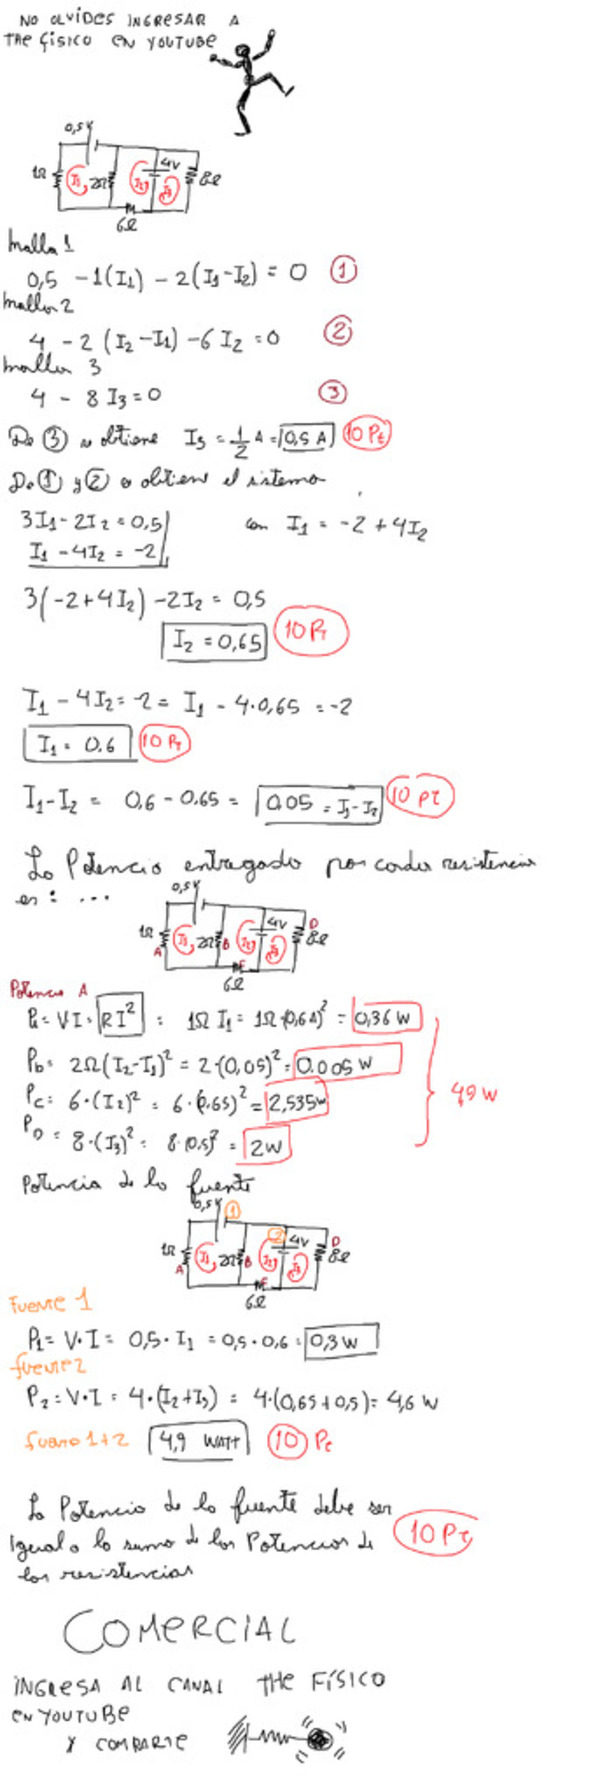 NO OLVIDES INGRESAR A
THE FÍSICO EN YOUTUBE
0,5V
1Ω I₁ 2Ω I₂ 4V I₃ 8Ω
6Ω
Malla 1
0,5 - 1(I₁) - 2(I₁-I₂) = 0 ①
malla 2
4 - 2 (I₂-I₁) - 6 I₂ = 0 ②
malla 3
4 - 8 I₃ = 0 ③
De ③ se obtiene I₃ = 1/2 A = 0,5 A 10 Pt
De ① y ② se obtiene el sistema
3I₁ - 2I₂ = 0,5 con I₁ = -2 + 4I₂
I₁ - 4I₂ = -2
3(-2+4I₂) - 2I₂ = 0,5
I₂ = 0,65 10 Pt
I₁ - 4I₂ = -2 = I₁ - 4·0,65 = -2
I₁ = 0.6 10 Pt
I₁-I₂ = 0,6 - 0.65 = 0.05 = I₁-I₂ 10 pt
La Potencia entregada por cada resistencia
es: ...
0,5V
1Ω A I₁ 2Ω B I₂ 4V I₃ D 8Ω
6Ω
Potencia A
Pₐ = VI = RI² = 1Ω I₁ = 1Ω·(0,6A)² = 0,36 W
P_b = 2Ω(I₂-I₁)² = 2·(0,05)² = 0.005 W
P_C = 6·(I₂)² = 6·(0.65)² = 2,535w
P_D = 8·(I₃)² = 8·(0.5)² = 2W
4,9 W
Potencia de la fuente
0,5V ①
1Ω A I₁ 2Ω B I₂ ② 4V I₃ D 8Ω
6Ω
FUENTE 1
P₁ = V·I = 0,5·I₁ = 0,5·0,6 = 0,3 W
fuente 2
P₂ = V·I = 4·(I₂+I₃) = 4·(0,65+0,5) = 4,6 W
fuente 1+2 4,9 WATT 10 Pt
La Potencia de la fuente debe ser
Igual a la suma de las Potencias de
las resistencias
10 Pt
COMERCIAL
INGRESA AL CANAL THE FÍSICO
EN YOUTUBE
Y COMPARTE